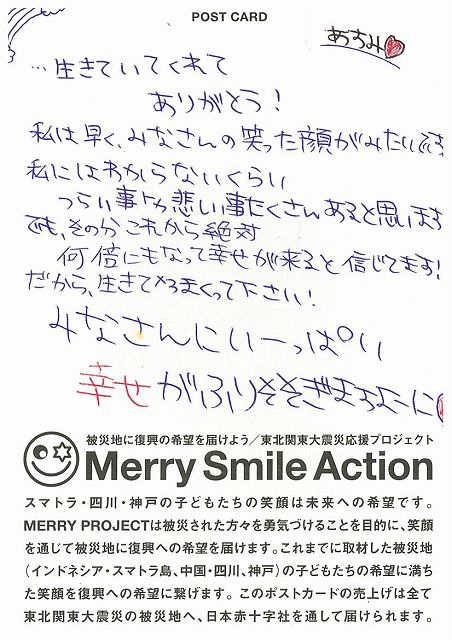 POST CARD
あつみ
…生きていてくれて
ありがとう!
私は早く、みなさんの笑った顔がみたいです
私にはわからないくらい
つらい事とか悲しい事たくさんあると思います
でも、その分これから絶対
何倍にもなって幸せが来ると信じてます!
だから、生きて下さい!
みなさんにいーっぱい
幸せがふりそそぎますよーに
被災地に復興の希望を届けよう/東北関東大震災応援プロジェクト
Merry Smile Action
スマトラ・四川・神戸の子どもたちの笑顔は未来への希望です。
MERRY PROJECTは被災された方々を勇気づけることを目的に、笑顔
を通じて被災地に復興への希望を届けます。これまでに取材した被災地
(インドネシア・スマトラ島、中国・四川、神戸)の子どもたちの希望に満ち
た笑顔を復興への希望に繋げます。このポストカードの売上げは全て
東北関東大震災の被災地へ、日本赤十字社を通して届けられます。